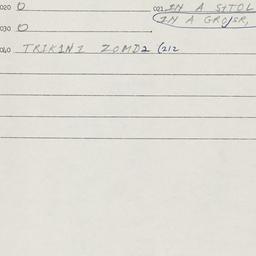 020 0 021 IN A STOL
IN A GROJER,
030 0
040 TRIKINI ZOMDA (212